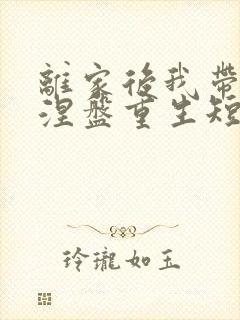 離家後我帶
涅盤重生短
玲瓏如玉